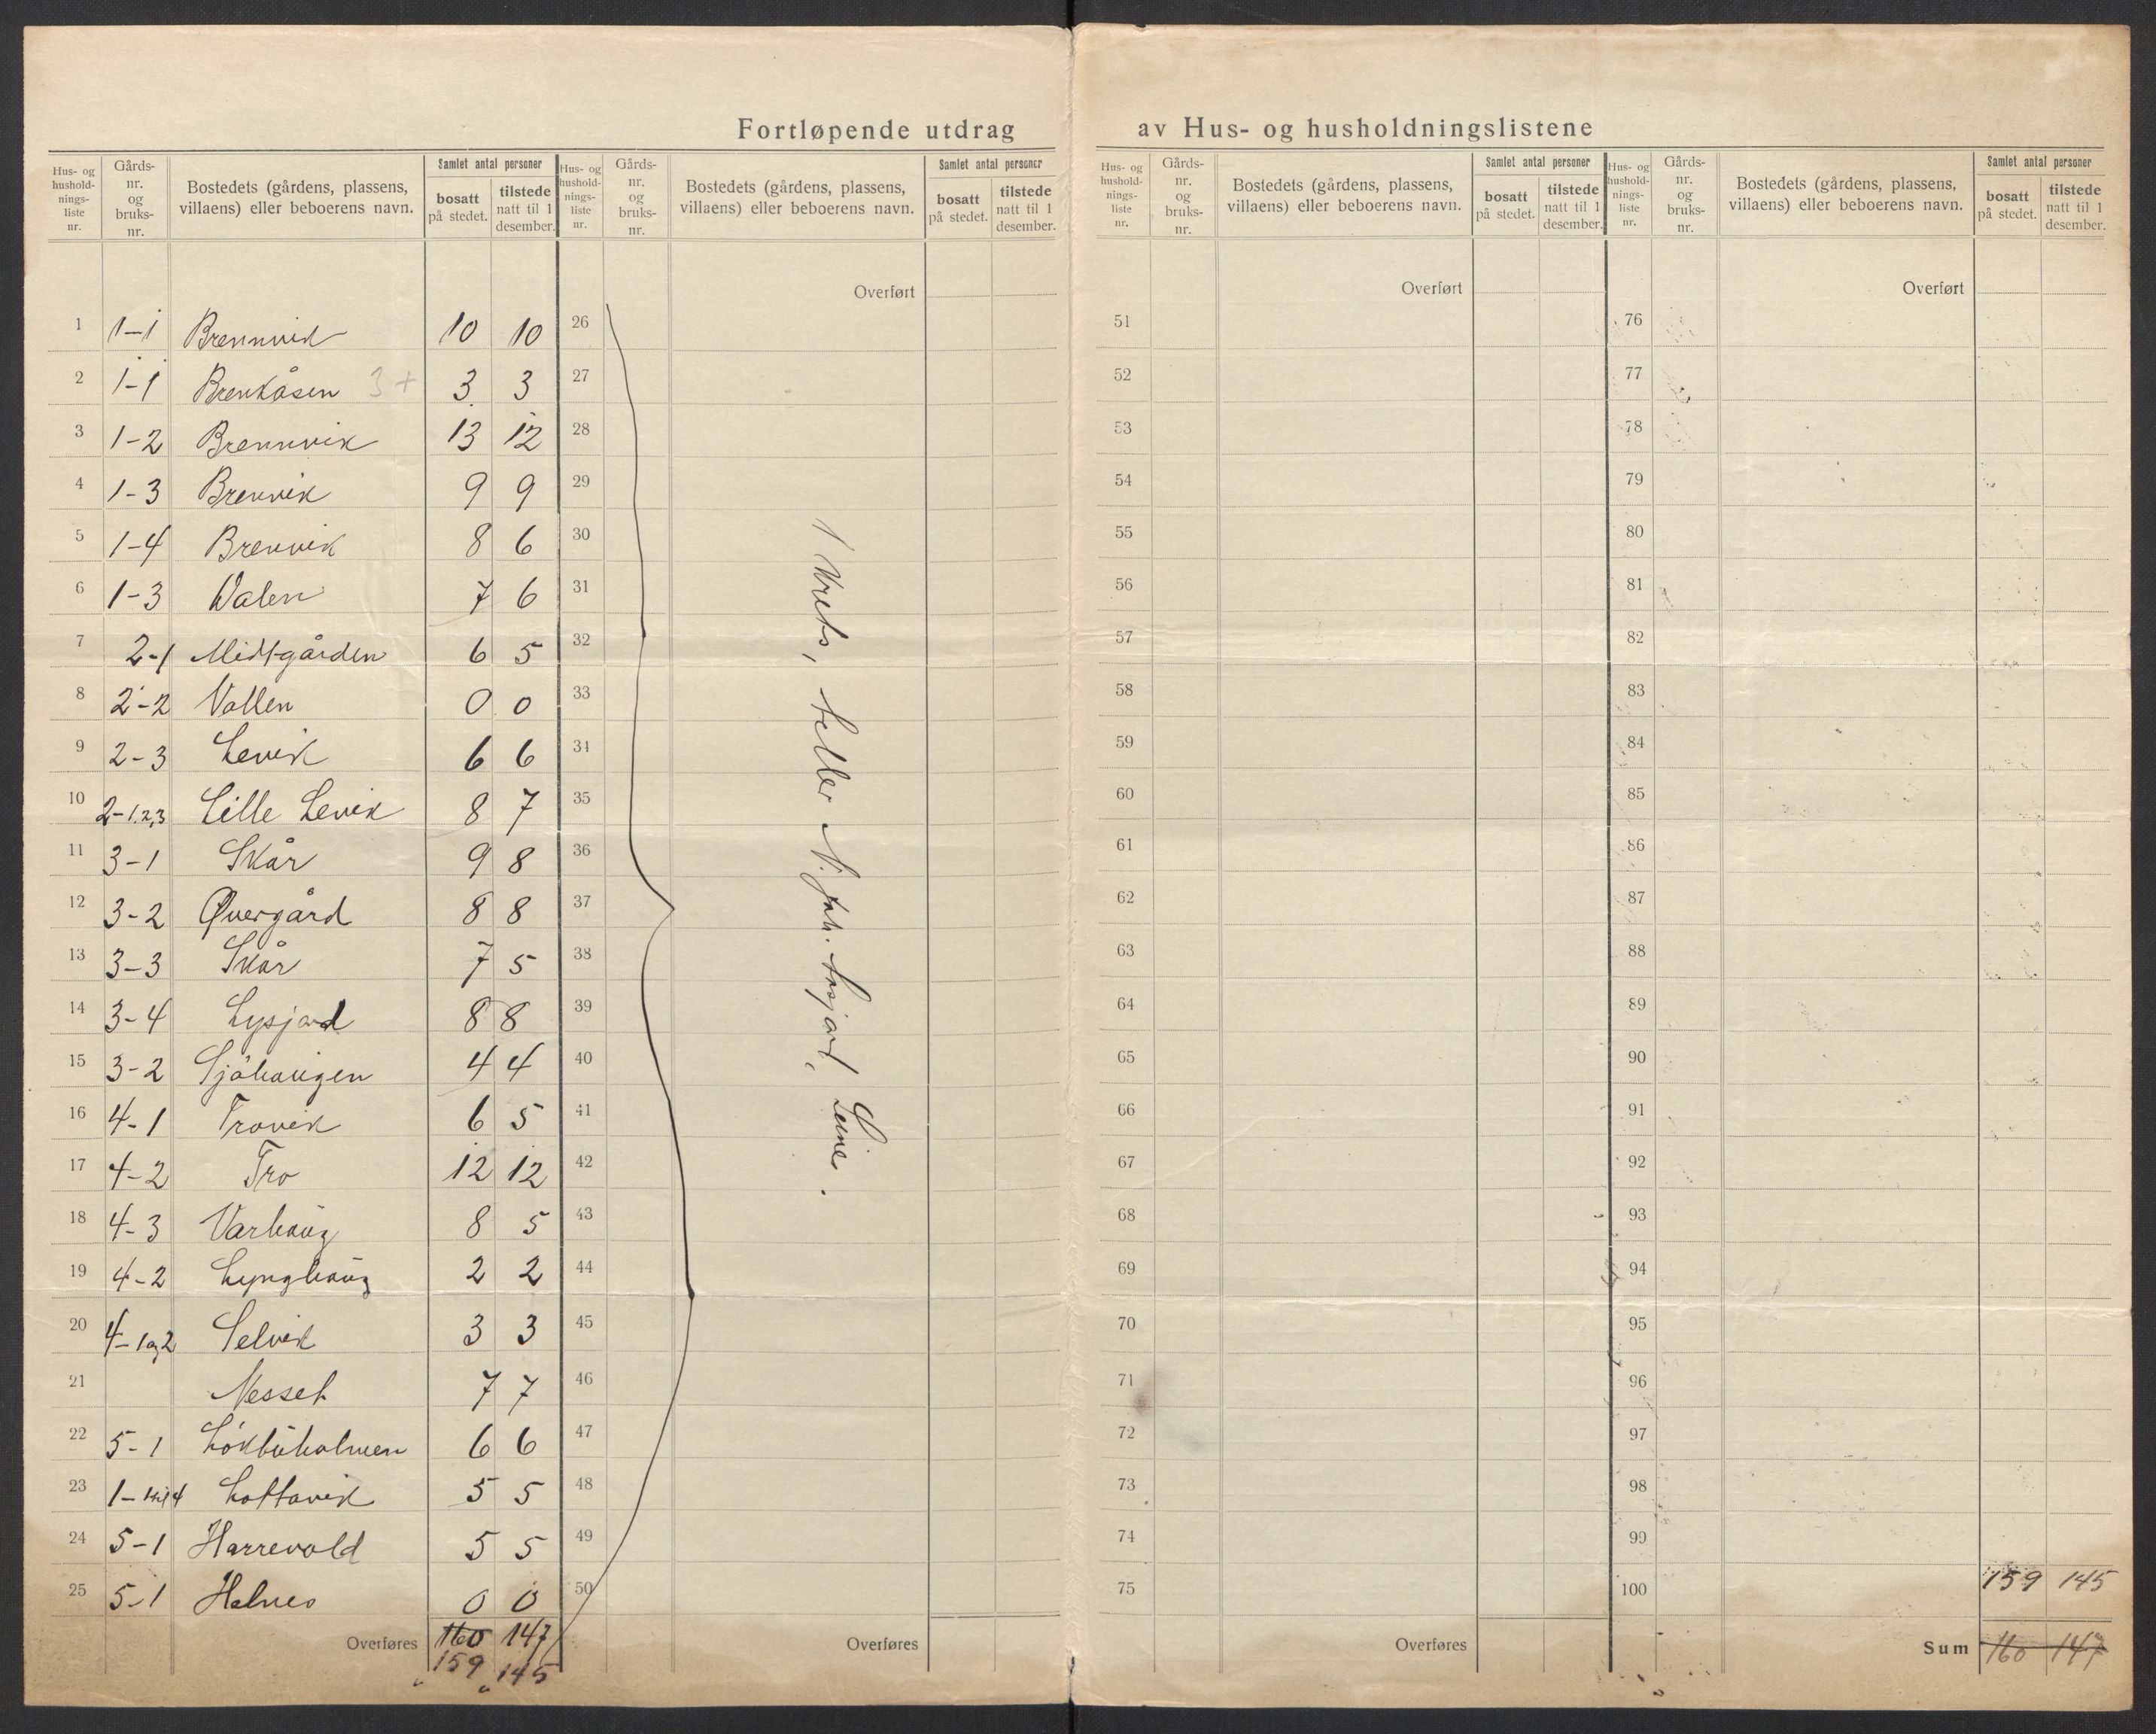 Fortløpende utdrag av Hus- og husholdningslistene
Hus- og hushold- nings- liste nr. | Gårds- nr. og bruks- nr. | Bostedets (gårdens, plassens, villaens) eller beboerens navn. | Samlet antal personer | bosatt på stedet. | tilstede natt til 1 desember.
Hus- og hushold- nings- liste nr. | Gårds- nr. og bruks- nr. | Bostedets (gårdens, plassens, villaens) eller beboerens navn. | Samlet antal personer | bosatt på stedet. | tilstede natt til 1 desember.
Hus- og hushold- nings- liste nr. | Gårds- nr. og bruks- nr. | Bostedets (gårdens, plassens, villaens) eller beboerens navn. | Samlet antal personer | bosatt på stedet. | tilstede natt til 1 desember.
Hus- og hushold- nings- liste nr. | Gårds- nr. og bruks- nr. | Bostedets (gårdens, plassens, villaens) eller beboerens navn. | Samlet antal personer | bosatt på stedet. | tilstede natt til 1 desember.
Overført Overført Overført
1 1-1 Brennvik 10 10 26 51 76
2 1-1 Brenkåsen 3+ 3 3 27 52 77
3 1-2 Brennvik 13 12 28 53 78
4 1-3 Brenvik 9 9 29 54 79
5 1-4 Brenvik 8 6 30 55 80
6 1-3 Valen 7 6 31 56 81
7 2-1 Midtgården 6 5 32 57 82
8 2-2 Vollen 0 0 33 58 83
9 2-3 Levik 6 6 34 59 84
10 2-1,2,3 Lille Levik 8 7 35 60 85
11 3-1 Skår 9 8 36 61 86
12 3-2 Øvergård 8 8 37 62 87
13 3-3 Skår 7 5 38 63 88
14 3-4 Lysjord 8 8 39 64 89
15 3-2 Sjöhaugen 4 4 40 65 90
16 4-1 Trovik 6 5 41 66 91
17 4-2 Tro 12 12 42 67 92
18 4-3 Varhaug 8 5 43 68 93
19 4-2 Lynghaug 2 2 44 69 94
20 4-1og2 Selvik 3 3 45 70 95
21 Nesset 7 7 46 71 96
22 5-1 Lökbuholmen 6 6 47 72 97
23 1-1til4 Lottavik 5 5 48 73 98
24 5-1 Harrevold 5 5 49 74 99
25 5-1 Halnes 0 0 50 75 100 159 145
Overføres 160 147 Overføres Overføres Sum 160 147
159 145
1 Krets, teller N. Joh. Lysjord, Leines.